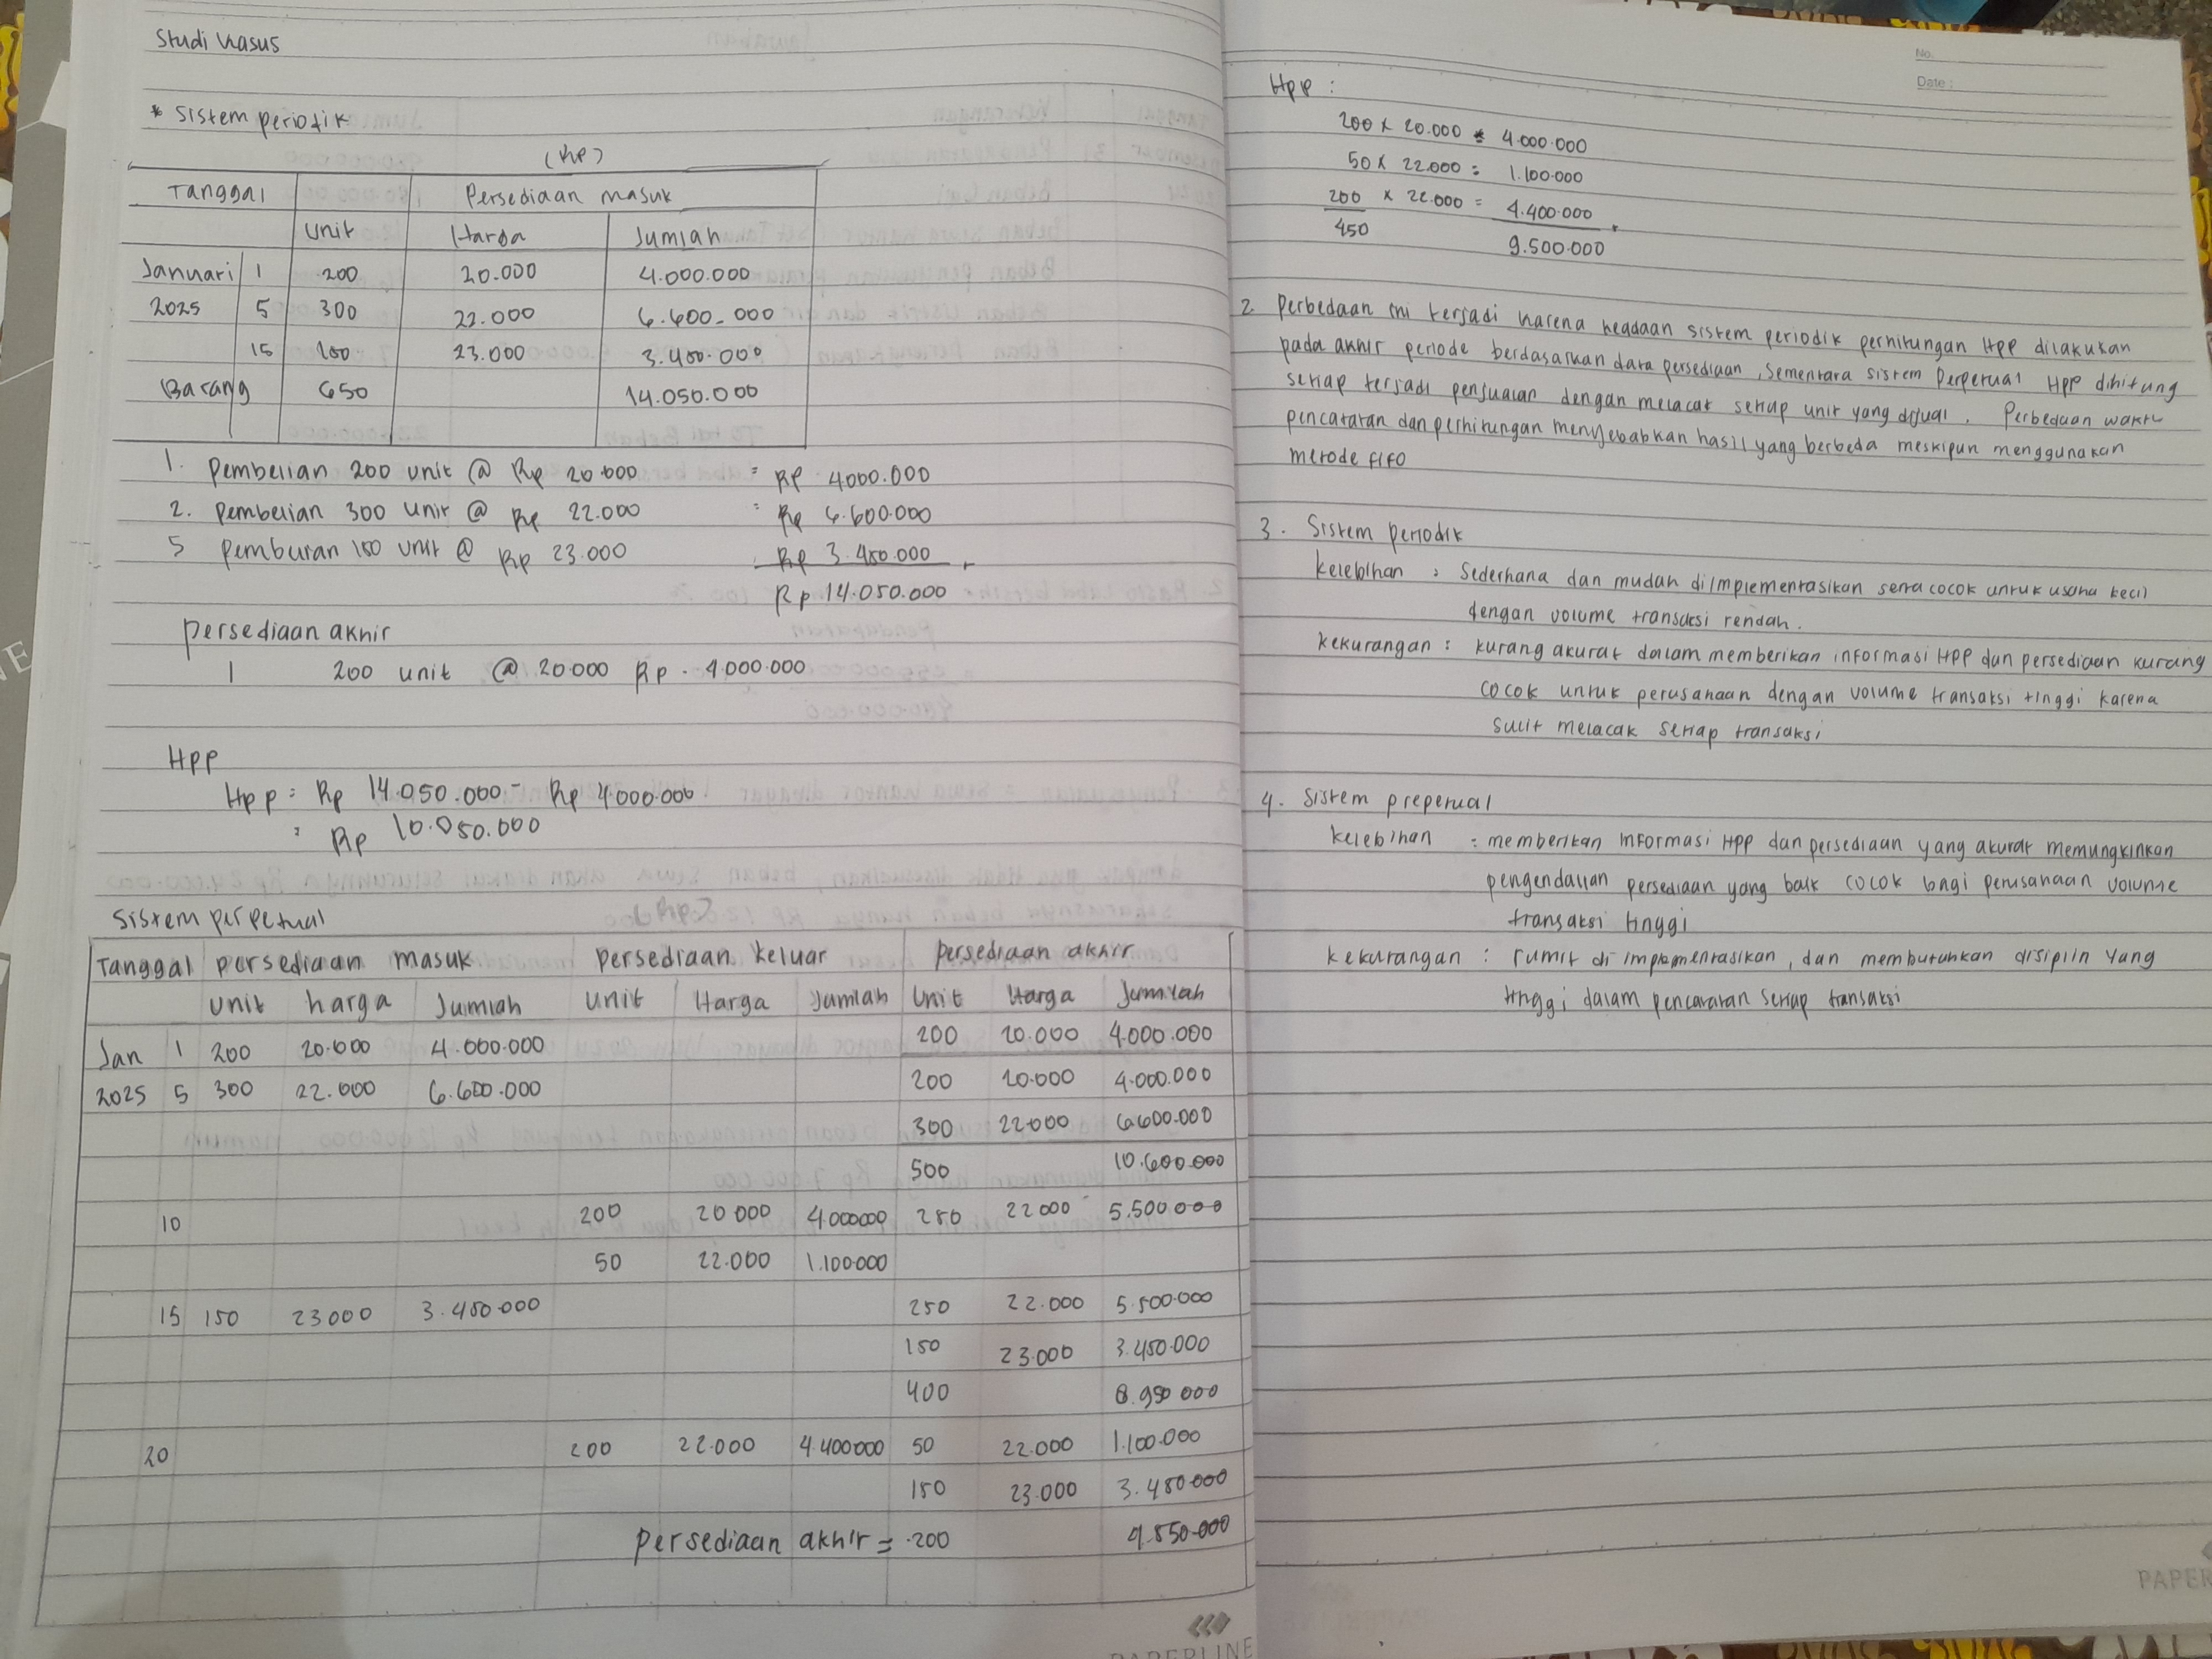 Studi kasus
* Sistem periodik
(Rp)
Tanggal Persediaan masuk
Unit Harga Jumlah
Januari 1 200 20.000 4.000.000
2025 5 300 22.000 6.600.000
15 150 23.000 3.450.000
Barang 650 14.050.000
1. Pembelian 200 unit @ Rp 20.000 = Rp 4000.000
2. Pembelian 300 unit @ Rp 22.000 = Rp 6.600.000
5 Pemburan 150 unit @ Rp 23.000 = Rp 3.450.000 +
Rp 14.050.000
Persediaan akhir
1 200 unit @ 20.000 Rp. 4.000.000
HPP
Hpp = Rp 14.050.000 - Rp 4000.000
= Rp 10.050.000
Sistem perpetual (Rp)
Tanggal persediaan masuk persediaan keluar persediaan akhir
Unit harga Jumlah Unit Harga Jumlah Unit Harga Jumlah
Jan 1 200 20.000 4.000.000 200 20.000 4.000.000
2025 5 300 22.000 6.600.000 200 20.000 4.000.000
300 22.000 6.600.000
500 10.600.000
10 200 20.000 4.000.000 250 22.000 5.500.000
50 22.000 1.100.000
15 150 23.000 3.450.000 250 22.000 5.500.000
150 23.000 3.450.000
400 8.950.000
20 200 22.000 4.400.000 50 22.000 1.100.000
150 23.000 3.450.000
Persediaan akhir = 200 4.550.000
PAPERLINE
No.
Date :
Hpp :
200 x 20.000 = 4.000.000
50 x 22.000 = 1.100.000
200 x 22.000 = 4.400.000 +
450 9.500.000
2. Perbedaan ini terjadi karena keadaan sistem periodik perhitungan HPP dilakukan
pada akhir periode berdasarkan data persediaan, sementara sistem perpetual HPP dihitung
setiap terjadi penjualan dengan melacak setiap unit yang dijual. Perbedaan waktu
pencatatan dan perhitungan menyebabkan hasil yang berbeda meskipun menggunakan
metode FIFO
3. Sistem periodik
kelebihan : Sederhana dan mudah diimplementasikan serta cocok untuk usaha kecil
dengan volume transaksi rendah.
kekurangan : kurang akurat dalam memberikan informasi HPP dan persediaan kurang
cocok untuk perusahaan dengan volume transaksi tinggi karena
sulit melacak setiap transaksi
4. Sistem preperual
kelebihan : memberikan informasi HPP dan persediaan yang akurat memungkinkan
pengendalian persediaan yang baik cocok bagi perusahaan volume
transaksi tinggi
kekurangan : rumit di implementasikan, dan membutuhkan disiplin yang
tinggi dalam pencatatan setiap transaksi
PAPER